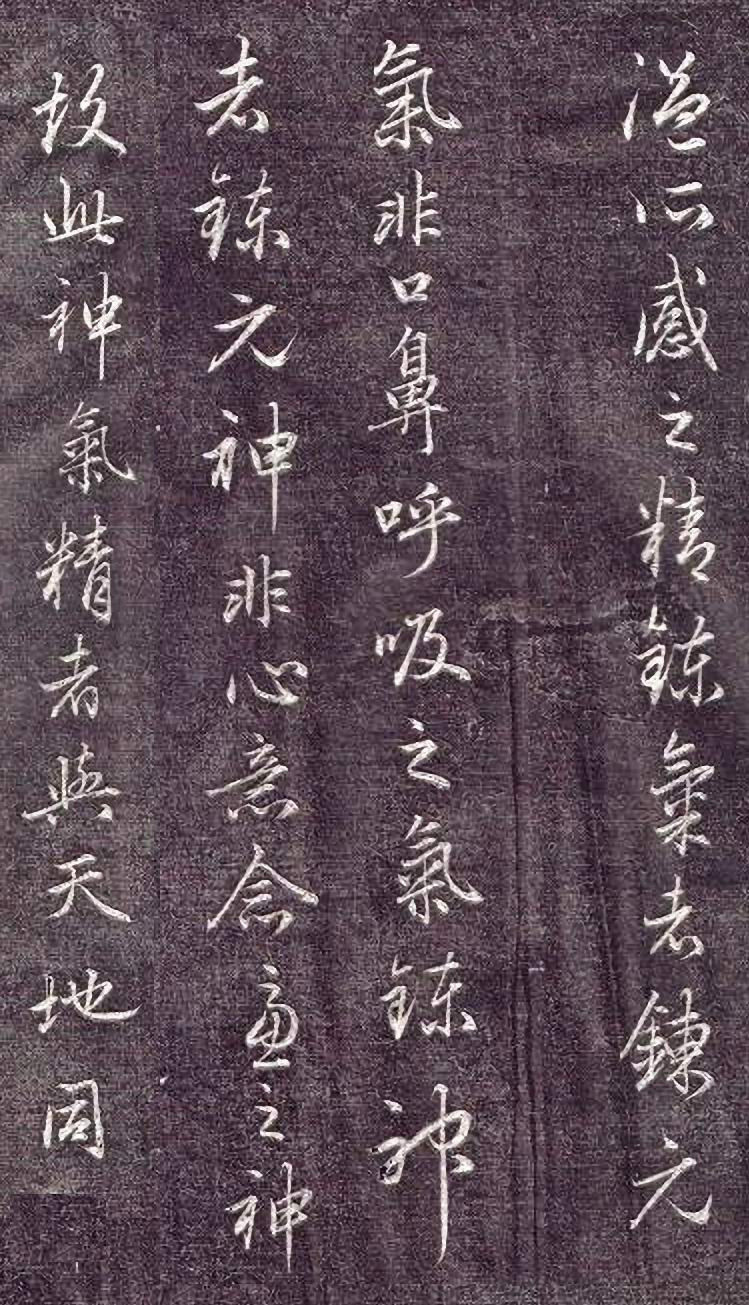 溢所感之精鍊氣者鍊元
氣非口鼻呼吸之氣鍊神
者鍊元神非心意念慮之神
故此神氣精者與天地同